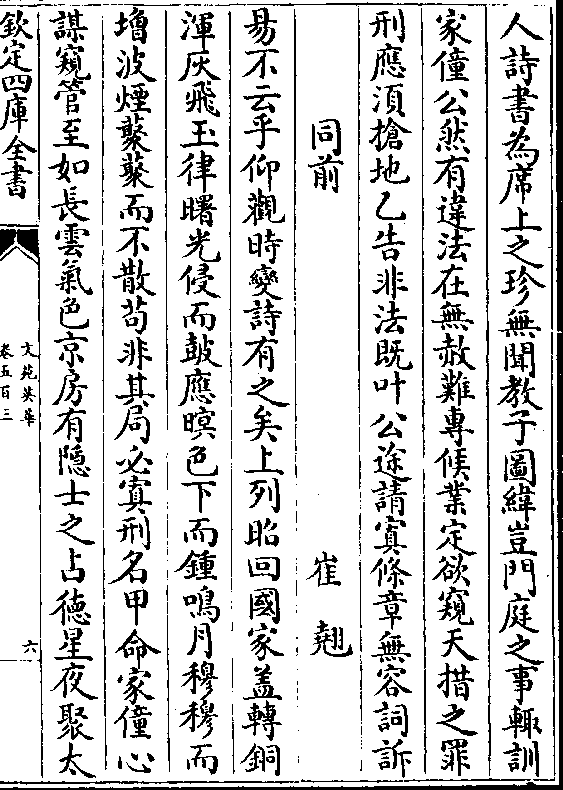 人詩書為席上之珍無聞教子圖緯豈門庭之事輙訓
家僮公然有違法在無赦難專候業定欲窺天措之罪
刑應湏搶地乙告非法既叶公途請寘條章無容詞訴
同前 崔翹
易不云乎仰觀時變詩有之矣上列昭回國家蓋轉銅
渾灰飛玉律曙光侵而鼓應暝色下而鍾鳴月穆穆而
増波煙藂藂而不散苟非其局必寘刑名甲命家僮心
謀窺管至如長雲氣色京房有隠士之占徳星夜聚太
欽定四庫全書
文苑英華
卷五百三
六